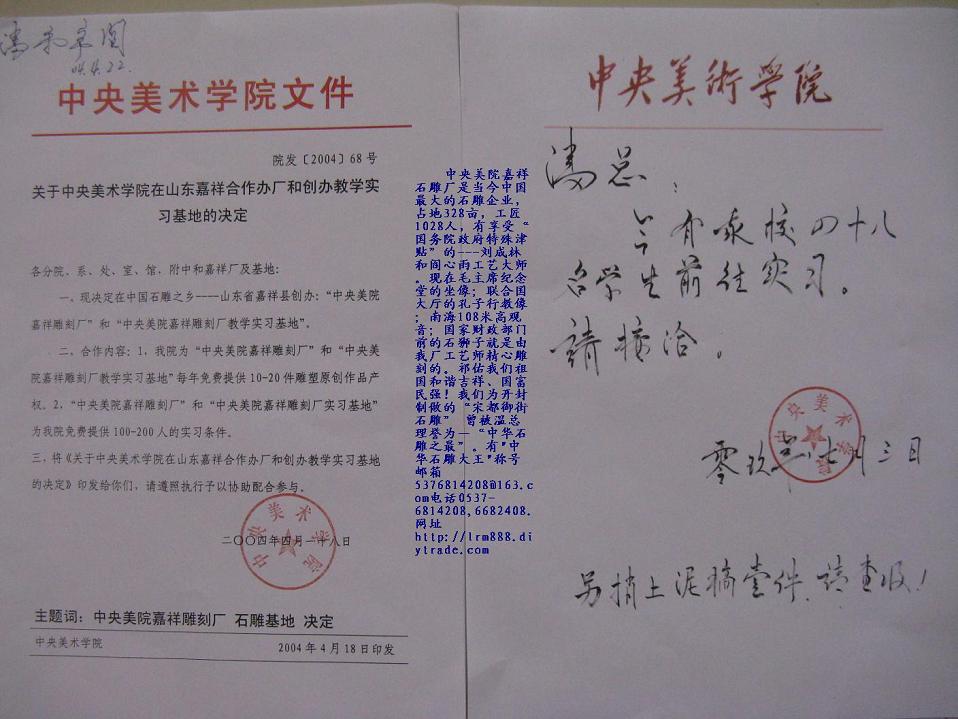 04.4.22.
中央美术学院文件
院发〔2004〕68号
关于中央美术学院在山东嘉祥合作办厂和创办教学实
习基地的决定
各分院、系、处、室、馆、附中和嘉祥厂及基地:
一、现决定在中国石雕之乡----山东省嘉祥县创办:“中央美院
嘉祥雕刻厂”和“中央美院嘉祥雕刻厂教学实习基地”。
二、合作内容:1,我院为“中央美院嘉祥雕刻厂”和“中央美
院嘉祥雕刻厂教学实习基地”每年免费提供10-20件雕塑原创作品产
权。2,“中央美院嘉祥雕刻厂”和“中央美院嘉祥雕刻厂实习基地”
为我院免费提供100-200人的实习条件。
三,将《关于中央美术学院在山东嘉祥合作办厂和创办教学实习基地
的决定》印发给你们,请遵照执行予以协助配合参与。
中央美术学院
二〇〇四年四月一十八日
主题词: 中央美院嘉祥雕刻厂 石雕基地 决定
中央美术学院 2004年4月18日印发
中央美院嘉祥
石雕厂是当今中国
最大的石雕企业,
占地328亩,工匠
1028人,有享受“
国务院政府特殊津
贴”的---刘成林
和阎心雨工艺大师
。现在毛主席纪念
堂的坐像;联合国
大厅的孔子行教像
;南海108米高观
音;国家财政部门
前的石狮子就是由
我厂工艺师精心雕
刻的。祁佑我们祖
国和谐吉祥、国富
民强!我们为开封
制做的“宋都御街
石雕” 曾被温总
理誉为—“中华石
雕之最”。有"中
华石雕大王"称号
邮箱
5376814208@163.c
om电话0537-
6814208,6682408.
网址
http://lrm888.di
ytrade.com
中央美術学院
总:
今有我校四十八
名学生前往实习。
請接洽。
中央美术学院
零玖年七月三日
另捎上泥稿壹件,请查收!